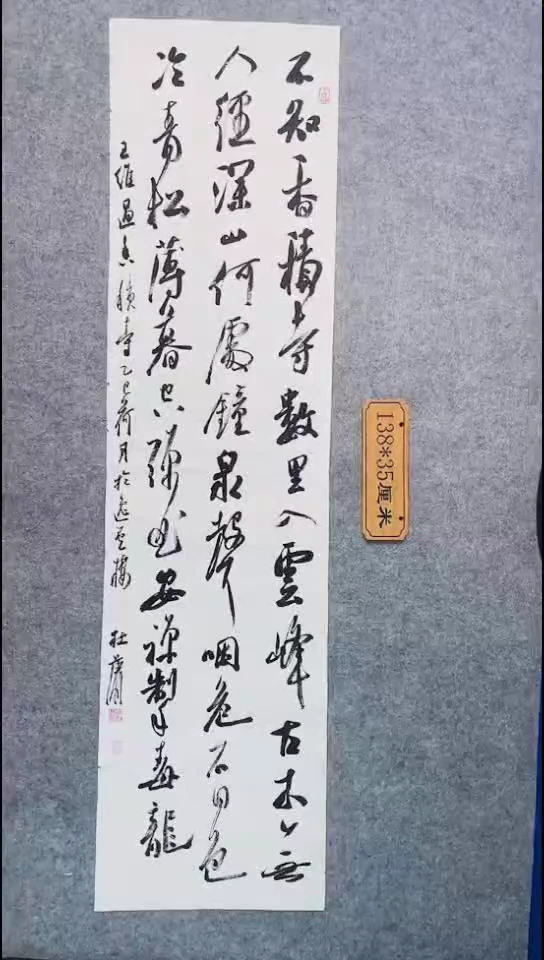 不知香積寺數里入雲峰古木無
人徑深山何處鐘泉聲咽危石日色
冷青松薄暮空潭曲安禪制毒龍
王維過香積寺乙巳荷月於雲樓 杜
138*35厘米